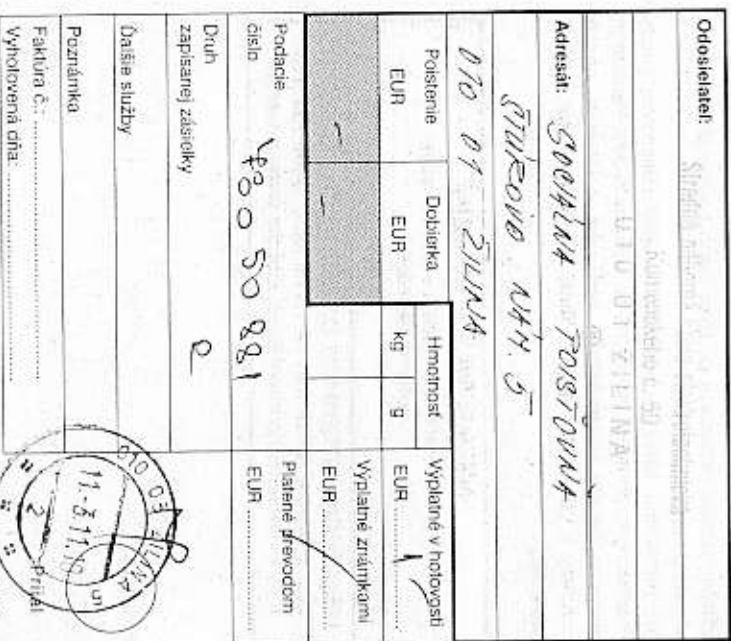 Odosielateľ:
010 01 ŽILINA
Adresát: SOCIÁLNA POISŤOVŇA
ŠTÚROVO NÁM. 5
010 01 ŽILINA
Poistenie Dobierka Hmotnosť Výplatné v hotovosti
EUR EUR kg g EUR
- -
Výplatné známkami
EUR
Podacie
číslo
50 881
Platené prevodom
EUR
Druh
zapísanej zásielky R
Ďalšie služby
Poznámka
Faktúra č.:
Vyhotovená dňa:
Prijal
010 03 ŽILINA
2